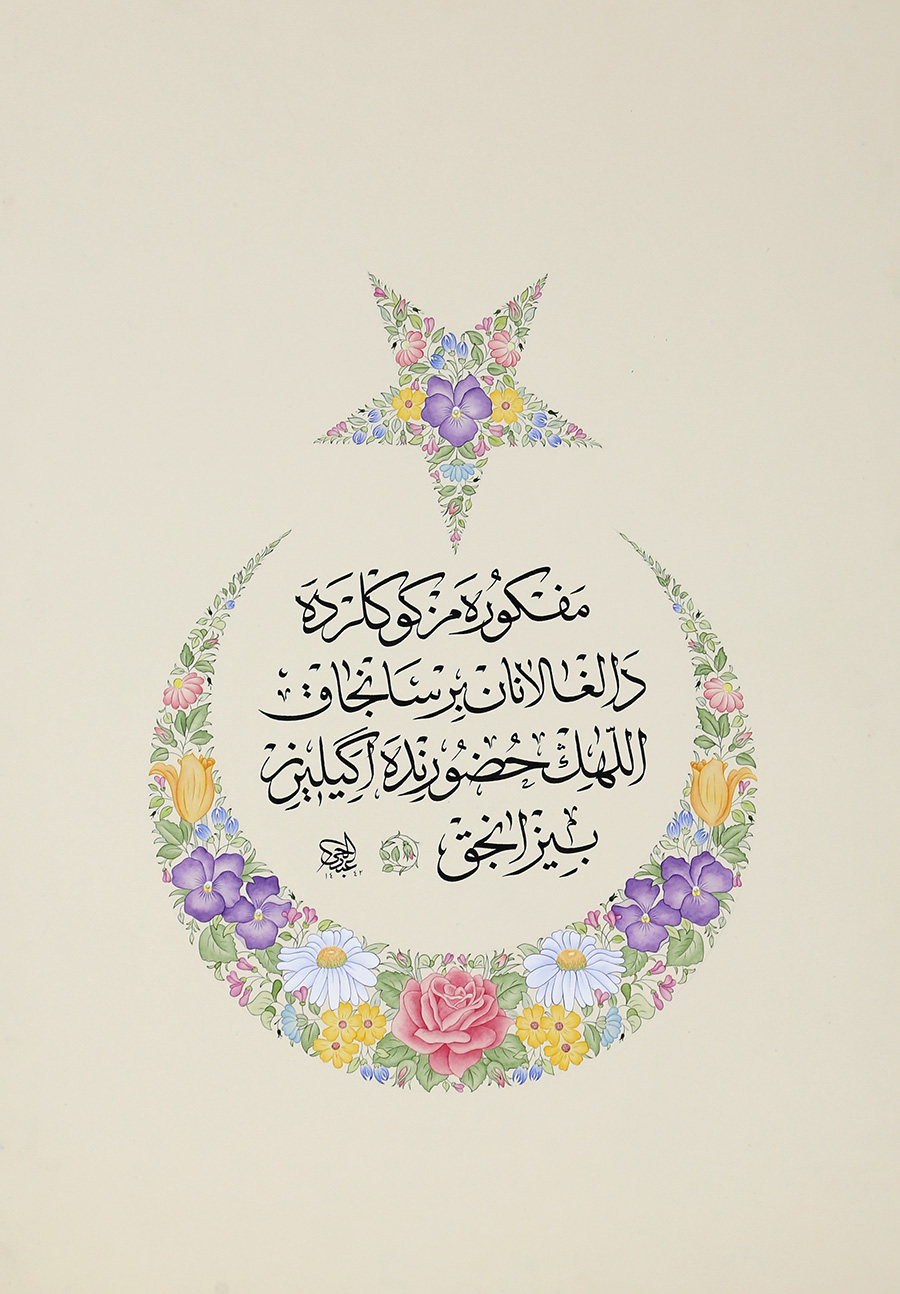 مَفْكُورَه مَز كوكلَردَه
دَالغالانان بِر سَانجاق
اللّٰهڭ حُضُورِندَه اَگيلِيرِز
بِيز انجَق
۱٤٤۲